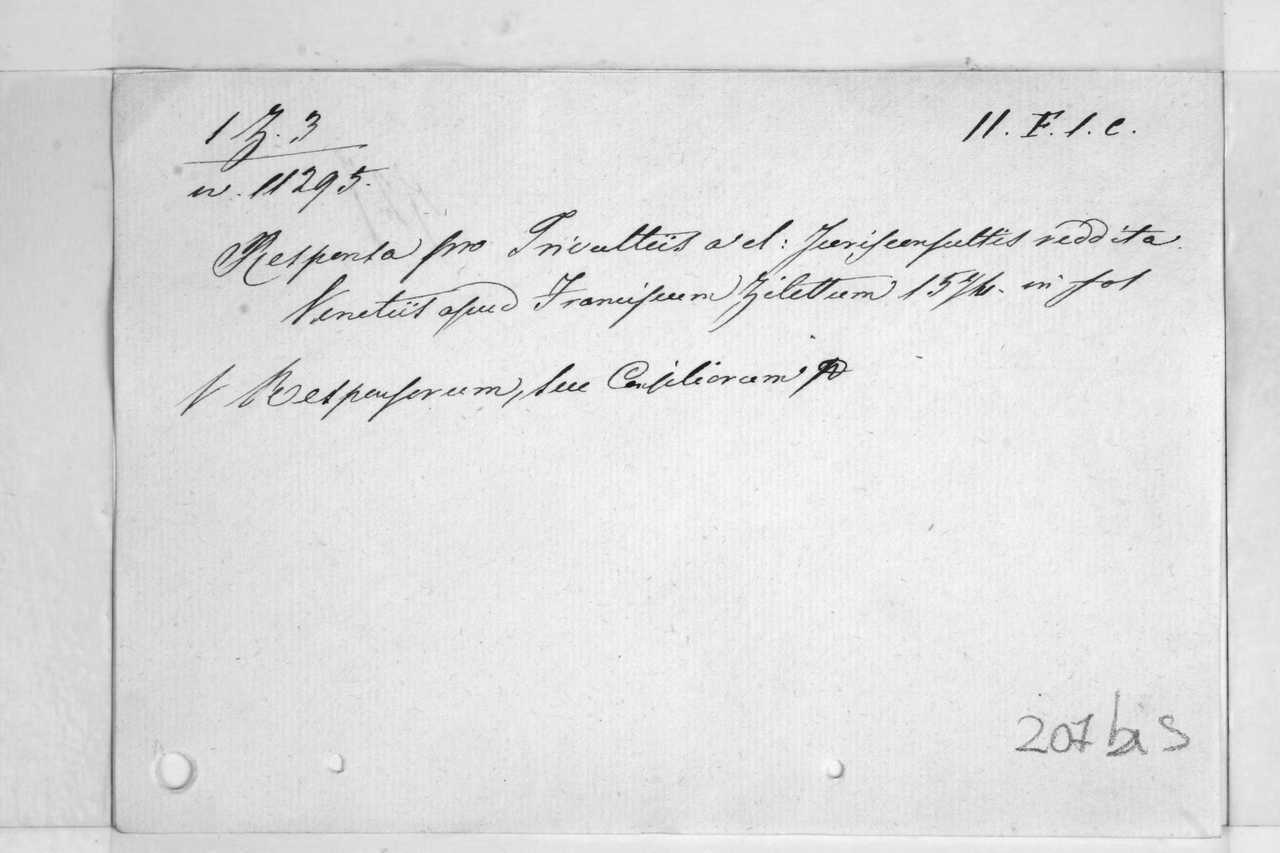 1 Z. 3
n. 11295.
11. F. 1. c.
Responsa pro Trivultiis a cl: Jurisconsultis reddita.
Venetiis apud Franciscum Zilettum 1574. in fol
V Responsorum, seu Consiliorum
207 bis